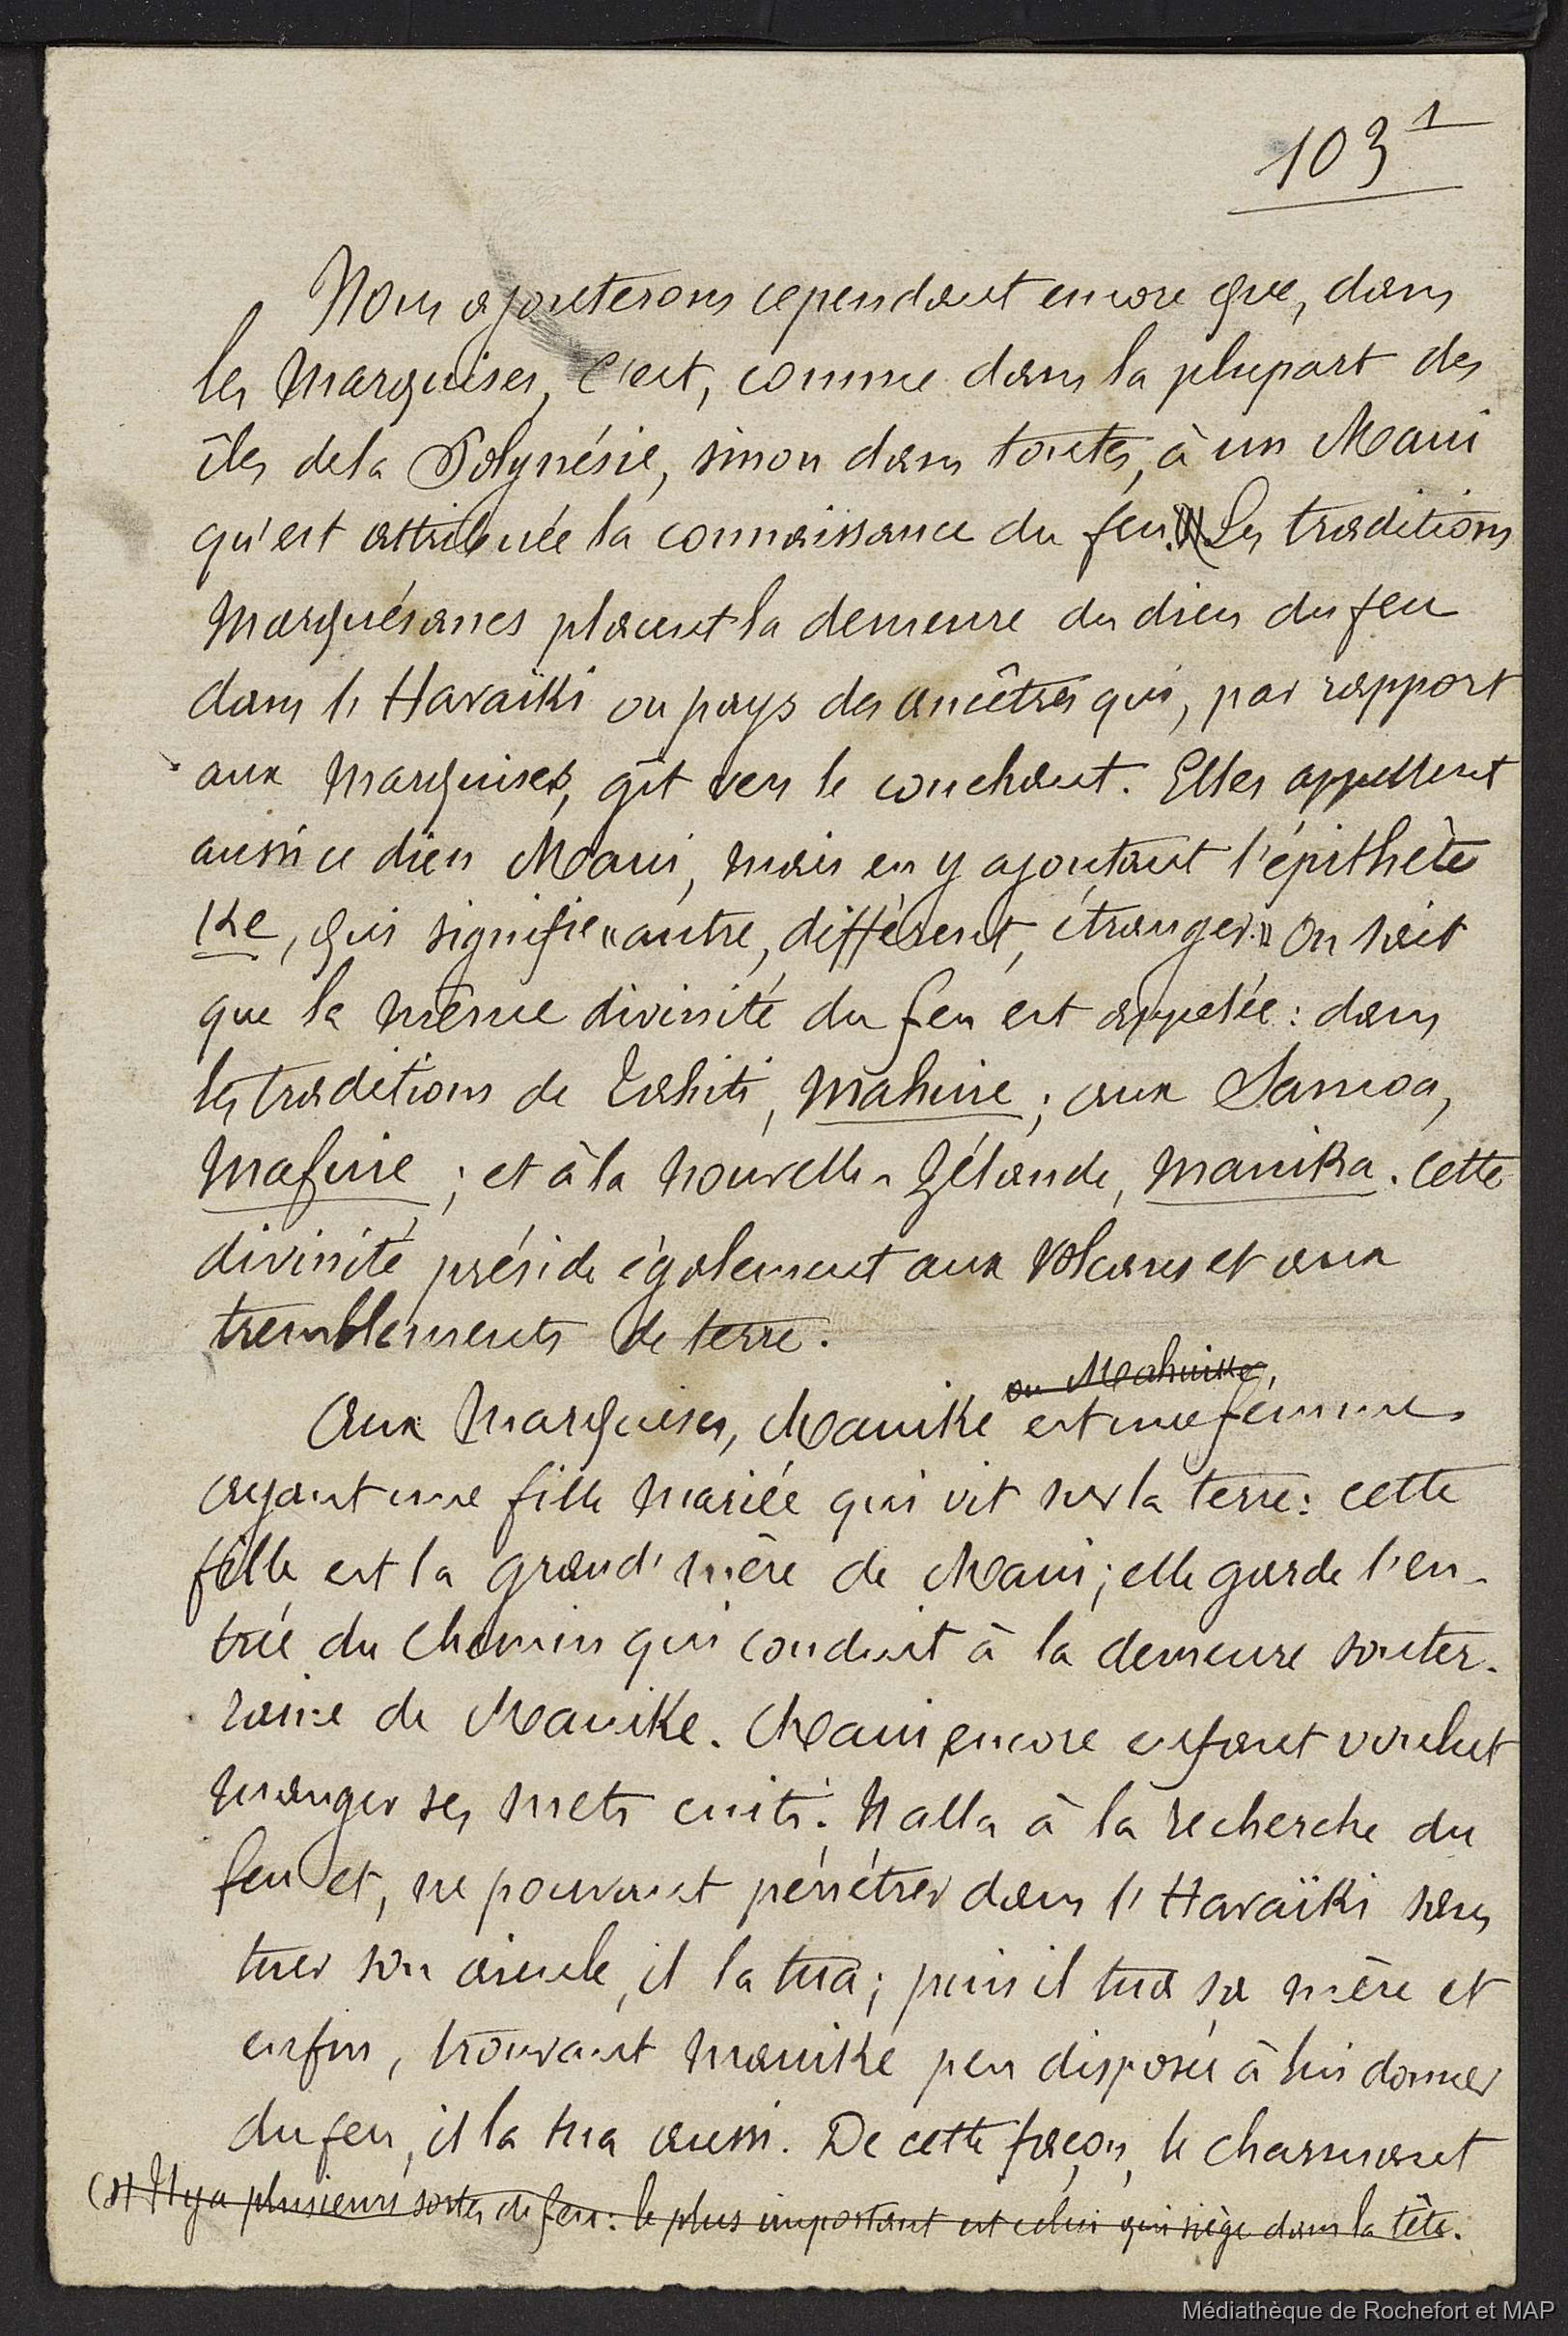 103 1
Nous ajouterons cependant encore que, dans
les Marquises, c'est, comme dans la plupart des
îles de la Polynésie, sinon dans toutes, à un Maui
qu'est attribuée la connaissance du feu. Les traditions
Marquésanes placent la demeure du dieu du feu
dans l'Havaïki ou pays des ancêtres qui, par rapport
aux Marquises, gît vers le couchant. Elles appellent
aussi ce dieu Maui, mais en y ajoutant l'épithète
Ke, qui signifie « autre, différent, étranger. » On sait
que la même divinité du feu est appelée : dans
les traditions de Tahiti, Mahuie ; aux Samoa,
Mafuie ; et à la Nouvelle-Zélande, Mauika. Cette
divinité préside également aux volcans et aux
tremblements de terre.
ou Mahuike,
Aux Marquises, Mauike est une femme
ayant une fille mariée qui vit sur la terre : cette
fille est la grand'mère de Maui ; elle garde l'en-
trée du chemin qui conduit à la demeure souter-
raine de Mauike. Maui encore enfant voulut
manger ses mets cuits. Il alla à la recherche du
feu et, ne pouvant pénétrer dans l'Havaïki sans
tuer son aïeule, il la tua ; puis il tua sa mère et
enfin, trouvant Mauike peu disposée à lui donner
du feu, il la tua aussi. De cette façon, le charmant
Il y a plusieurs sortes de feu : le plus important est celui qui siège dans la tête.
Médiathèque de Rochefort et MAP